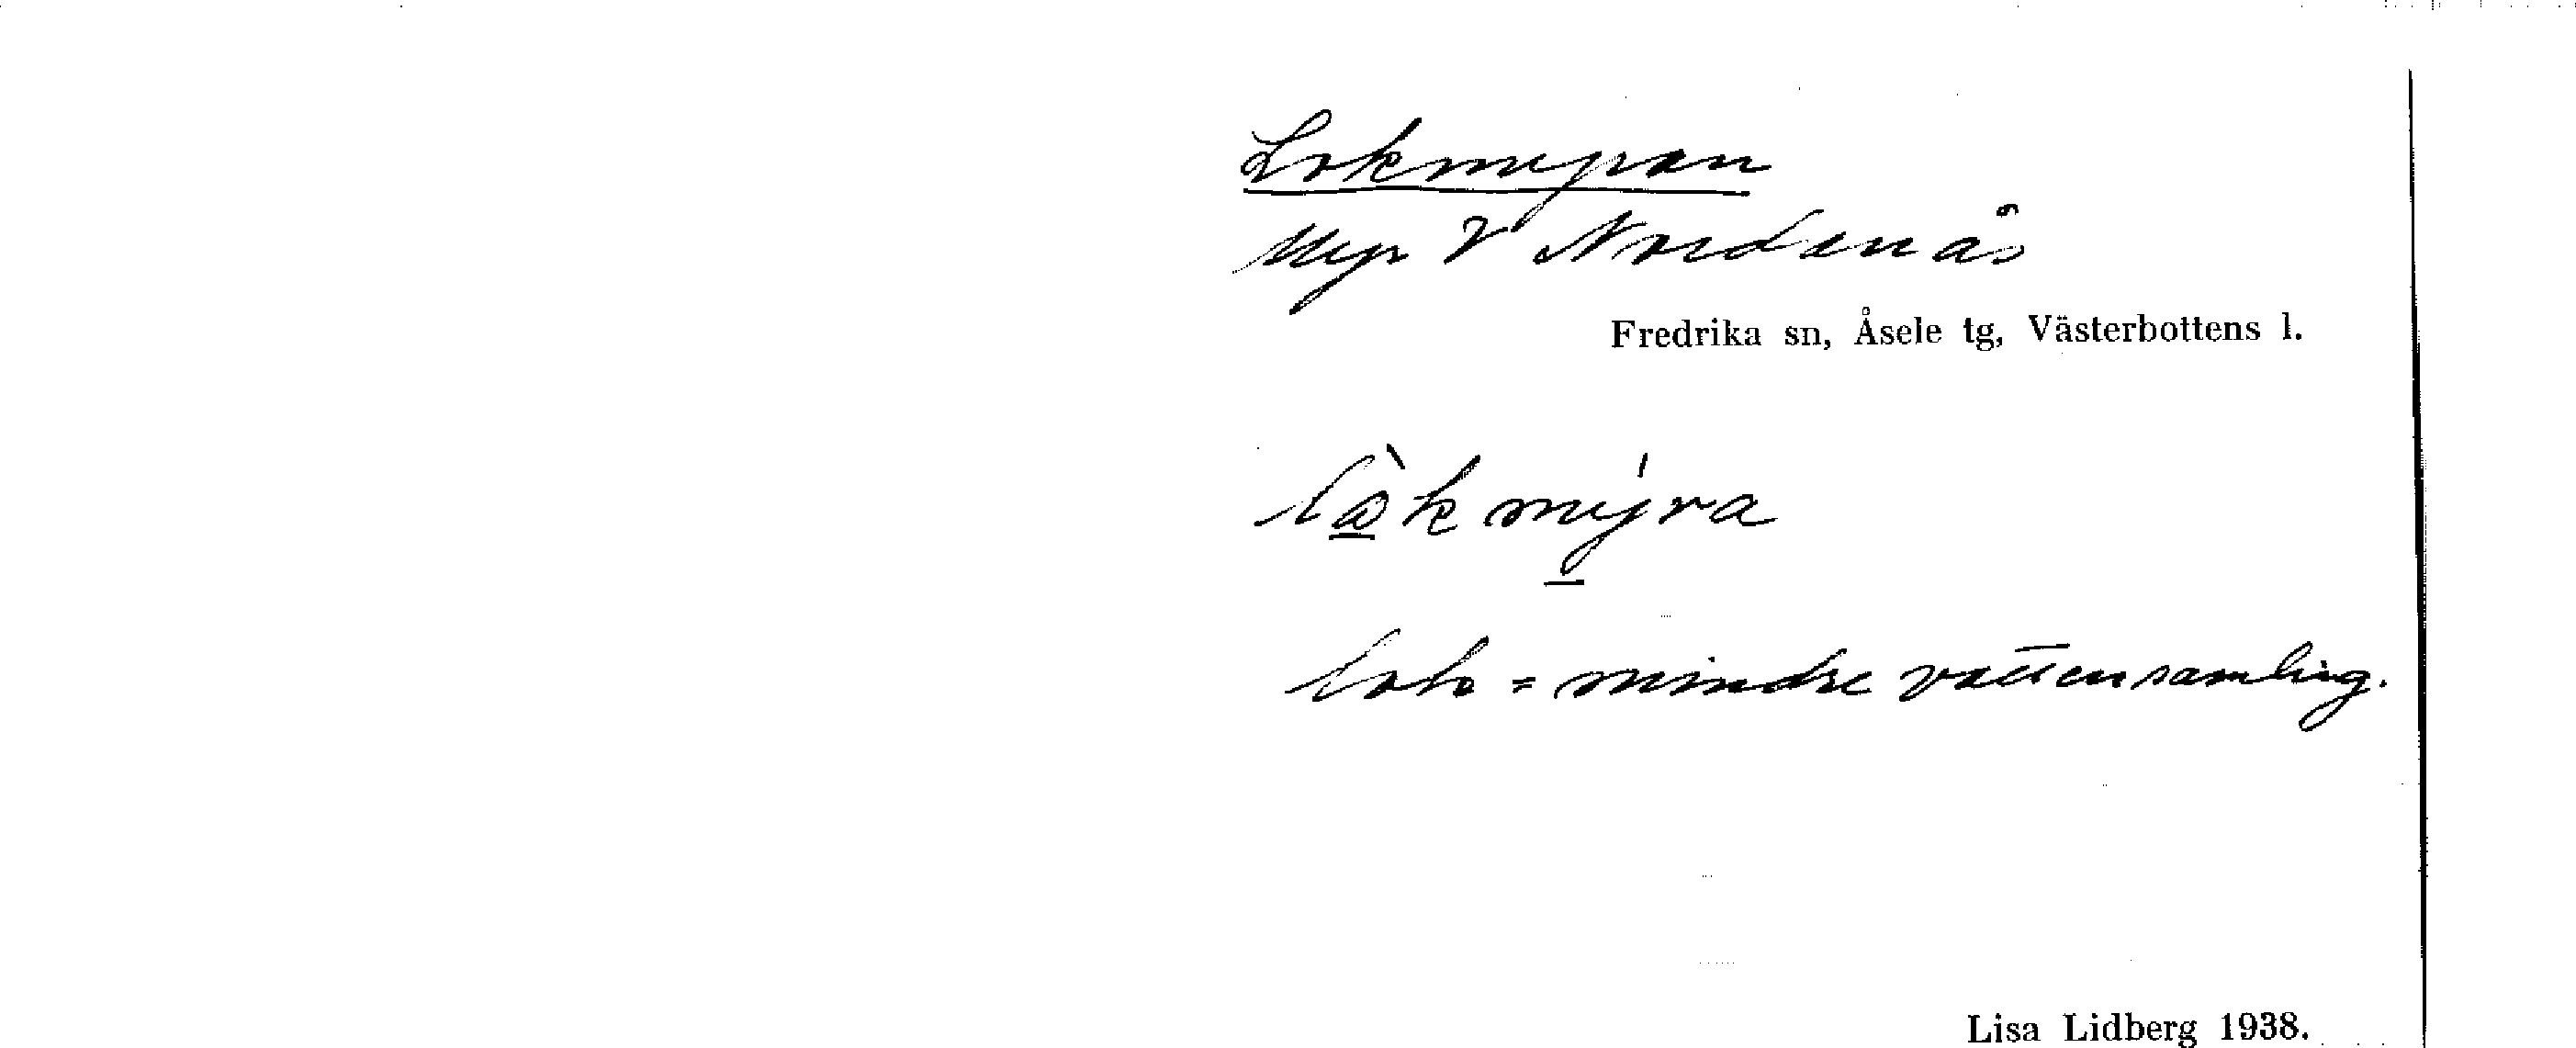 Lokmyran
Myr V Nordanås
Fredrika sn, Åsele tg, Västerbottens l.
lòkmýra
lok = mindre vattensamling.
Lisa Lidberg 1938.